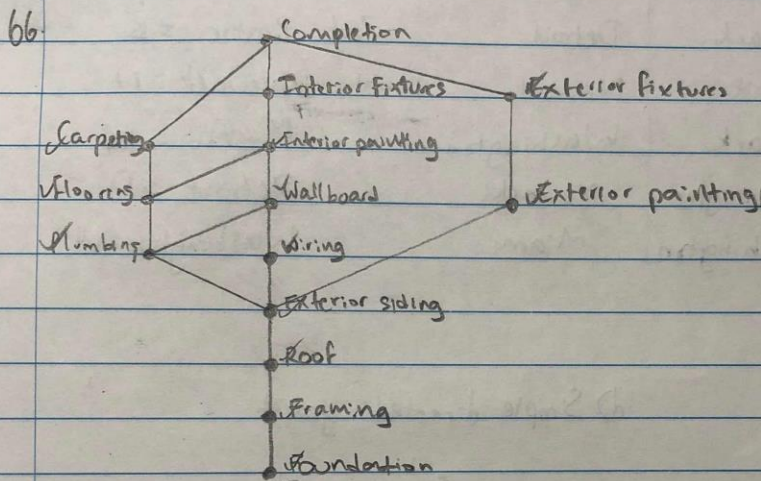 66.
Completion
Interior fixtures Exterior fixtures
Carpeting Interior painting
Flooring Wallboard Exterior painting
Plumbing Wiring
Exterior siding
Roof
Framing
Foundation